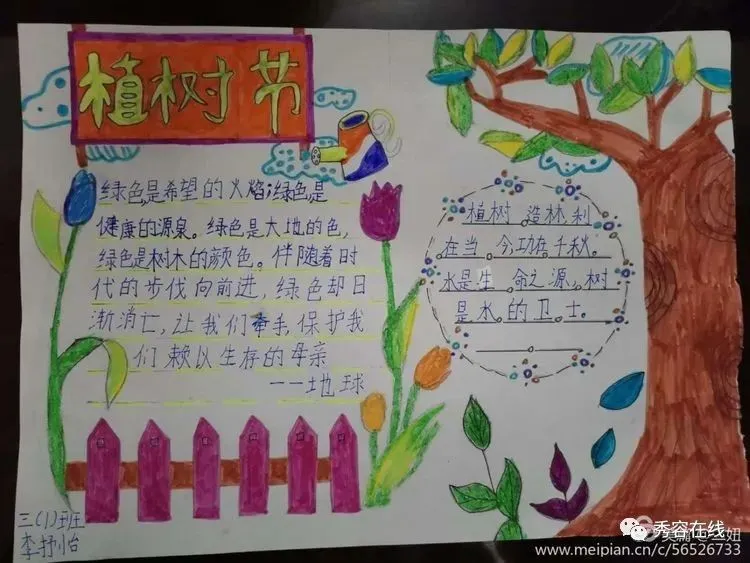 植树节
绿色是希望的火焰;绿色是
健康的源泉。绿色是大地的色,
绿色是树木的颜色。伴随着时
代的步伐向前进,绿色却日
渐消亡,让我们牵手,保护我
们赖以生存的母亲
——地球
植树造林,利
在当今,功在千秋。
水是生命之源,树
是水的卫士。
三(1)班
秀容在线
www.meipian.cn/c/56526733